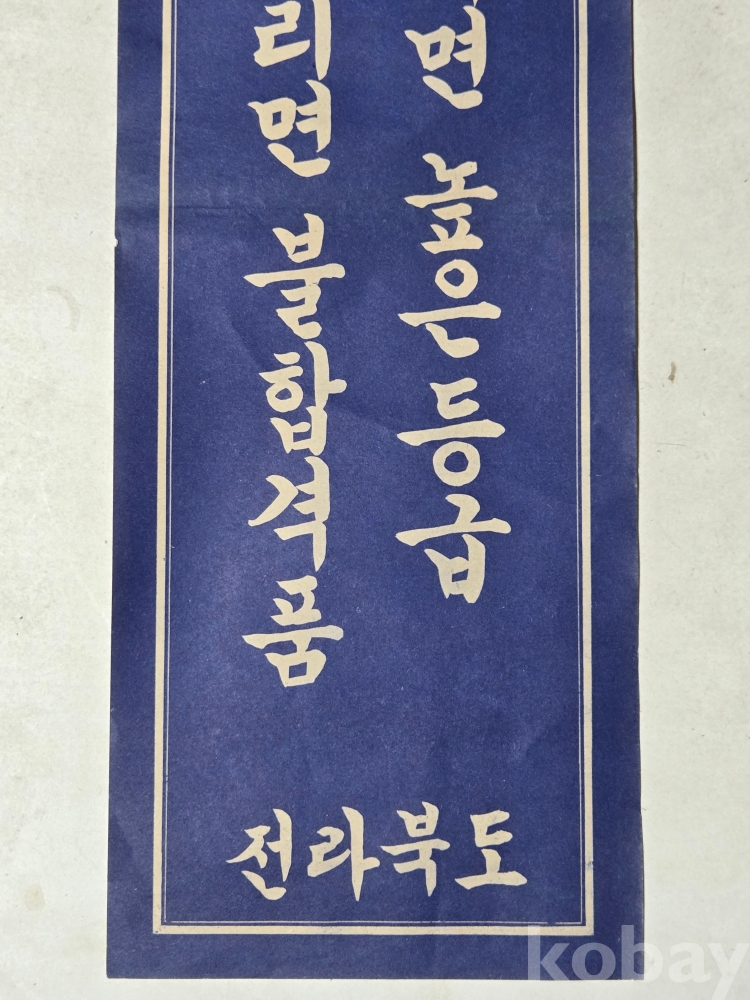 면 높은 등급
리면 불합격품
전라북도
kobay